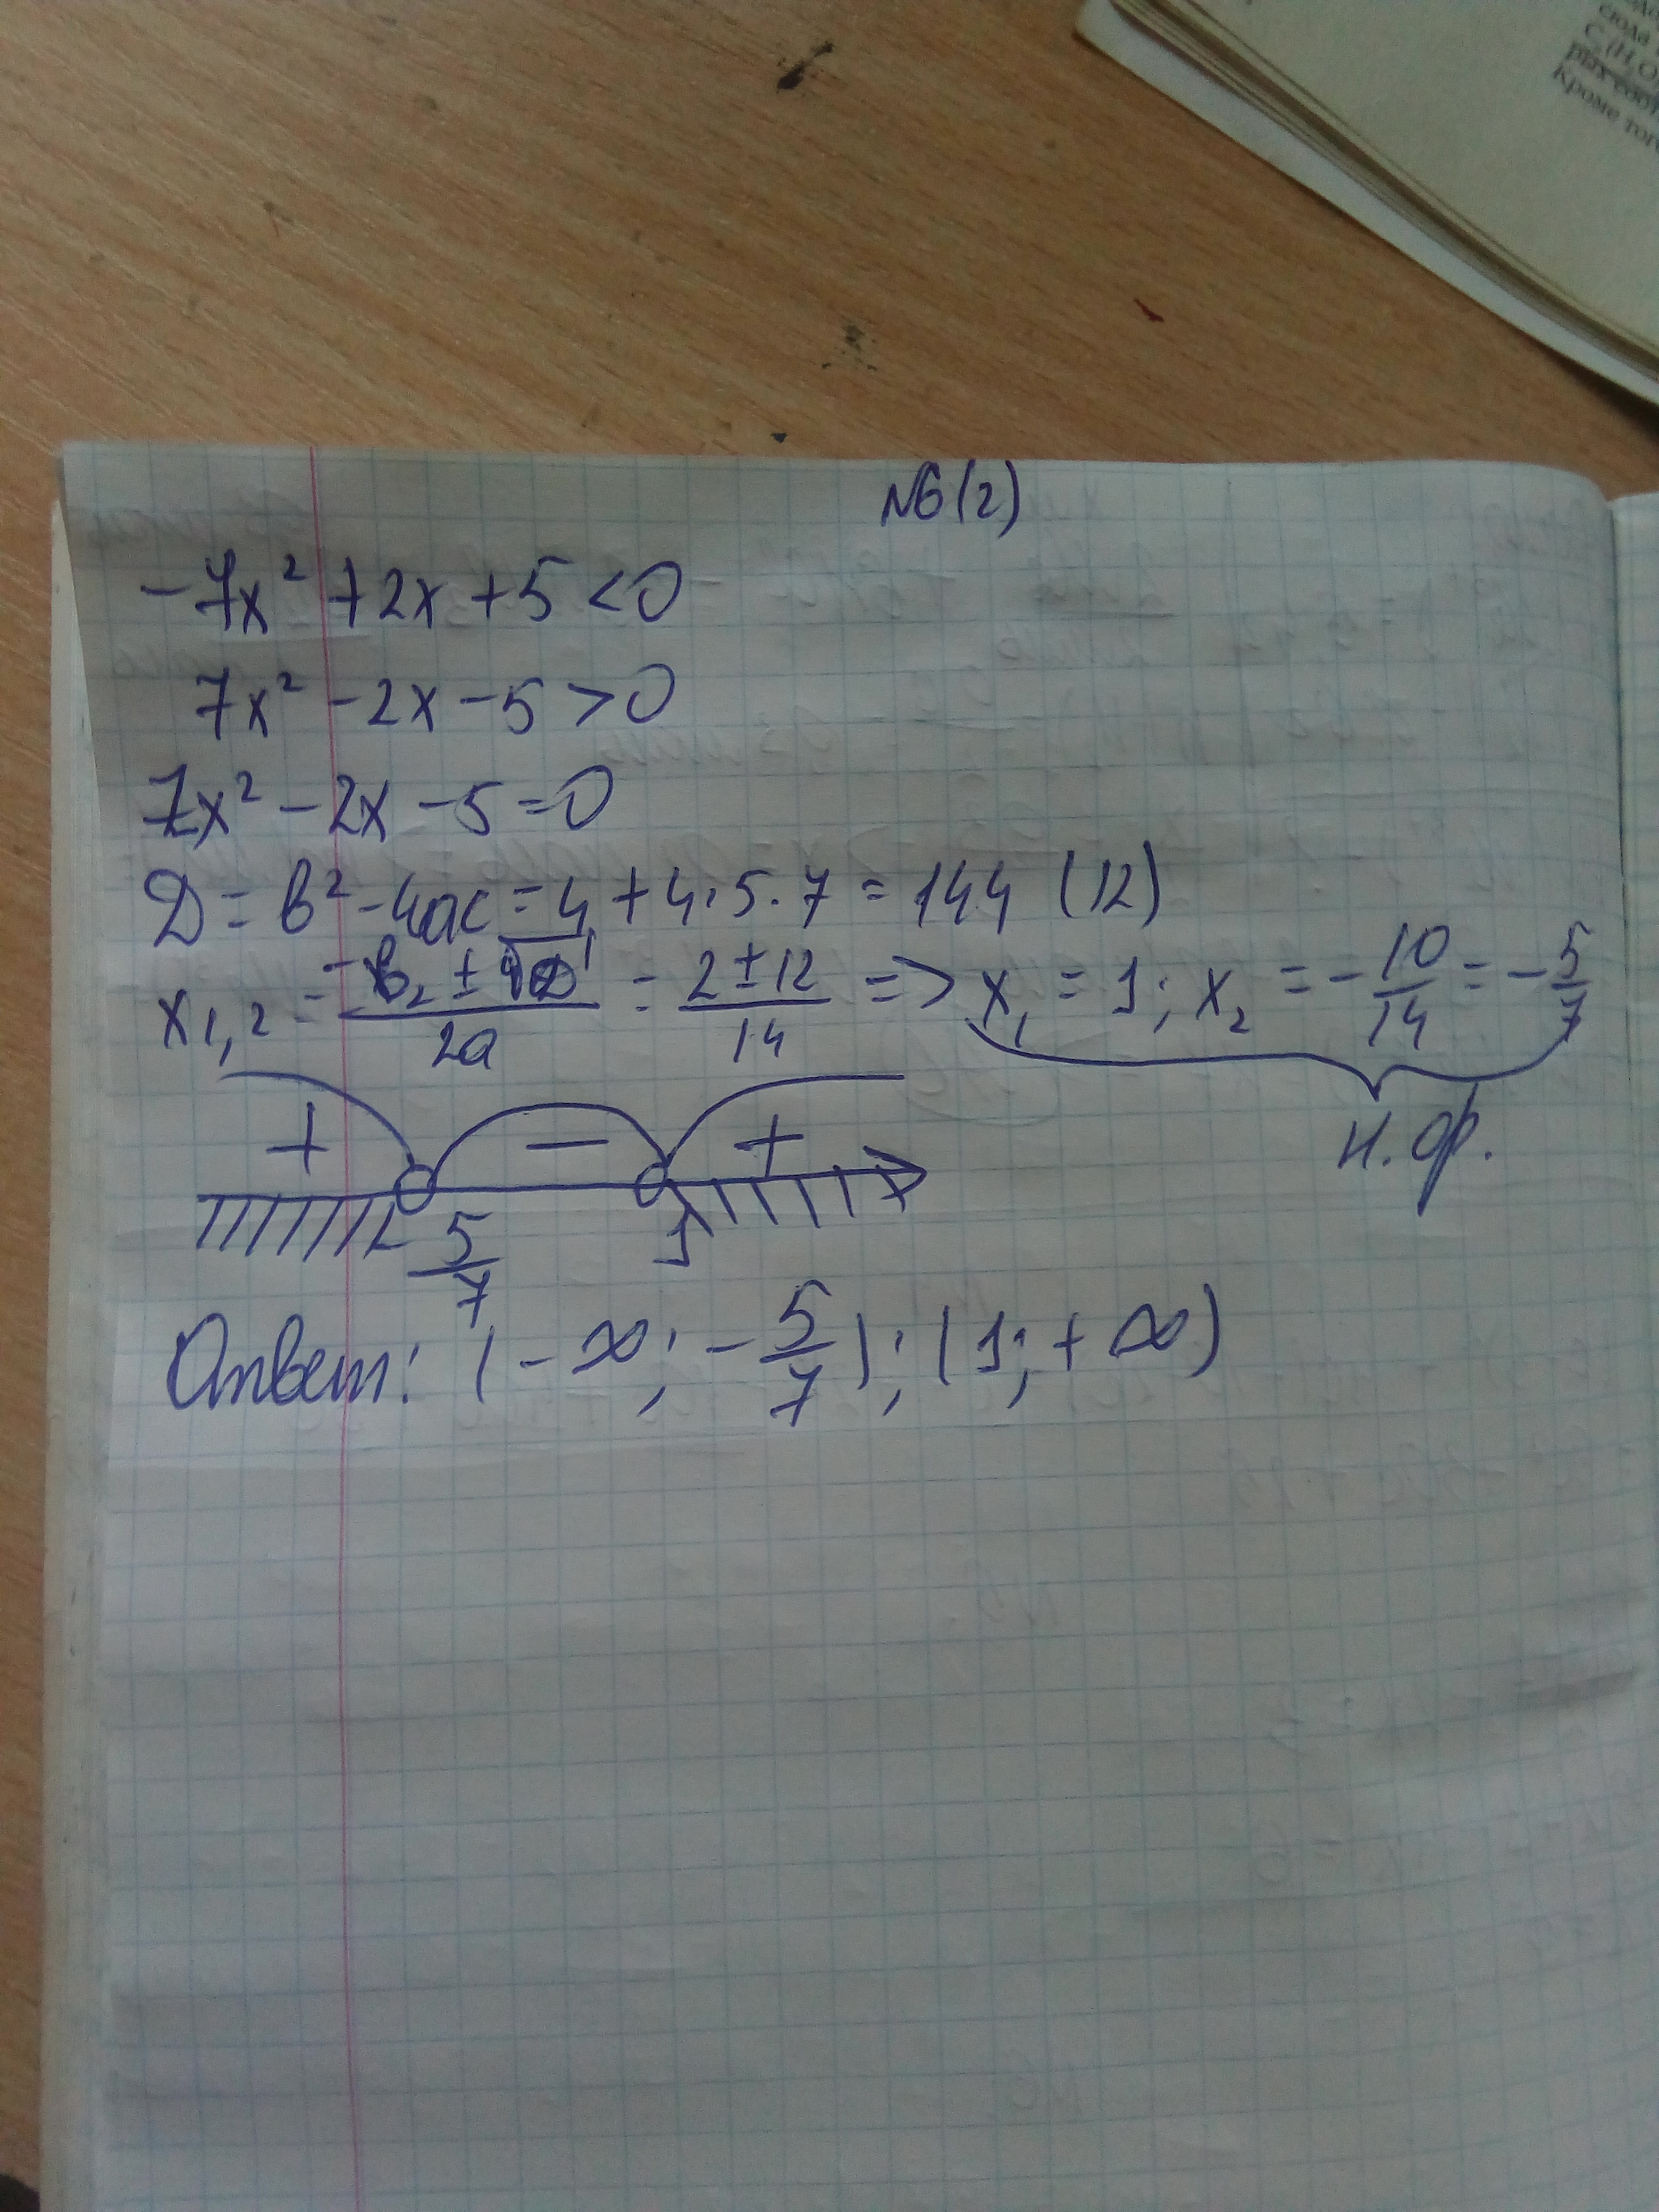 сюда
С (Н,О
рых соот
Кроме того
N6(2)
-7x² + 2x + 5 < 0
7x² - 2x - 5 > 0
7x² - 2x - 5 = 0
D = b² - 4ac = 4 + 4·5·7 = 144 (12)
x₁,₂ = (-b ± √D)/2a = (2 ± 12)/14 => x₁ = 1; x₂ = -10/14 = -5/7
н.ф.
+ - +
-5/7 1
Ответ: (-∞; -5/7); (1; +∞)